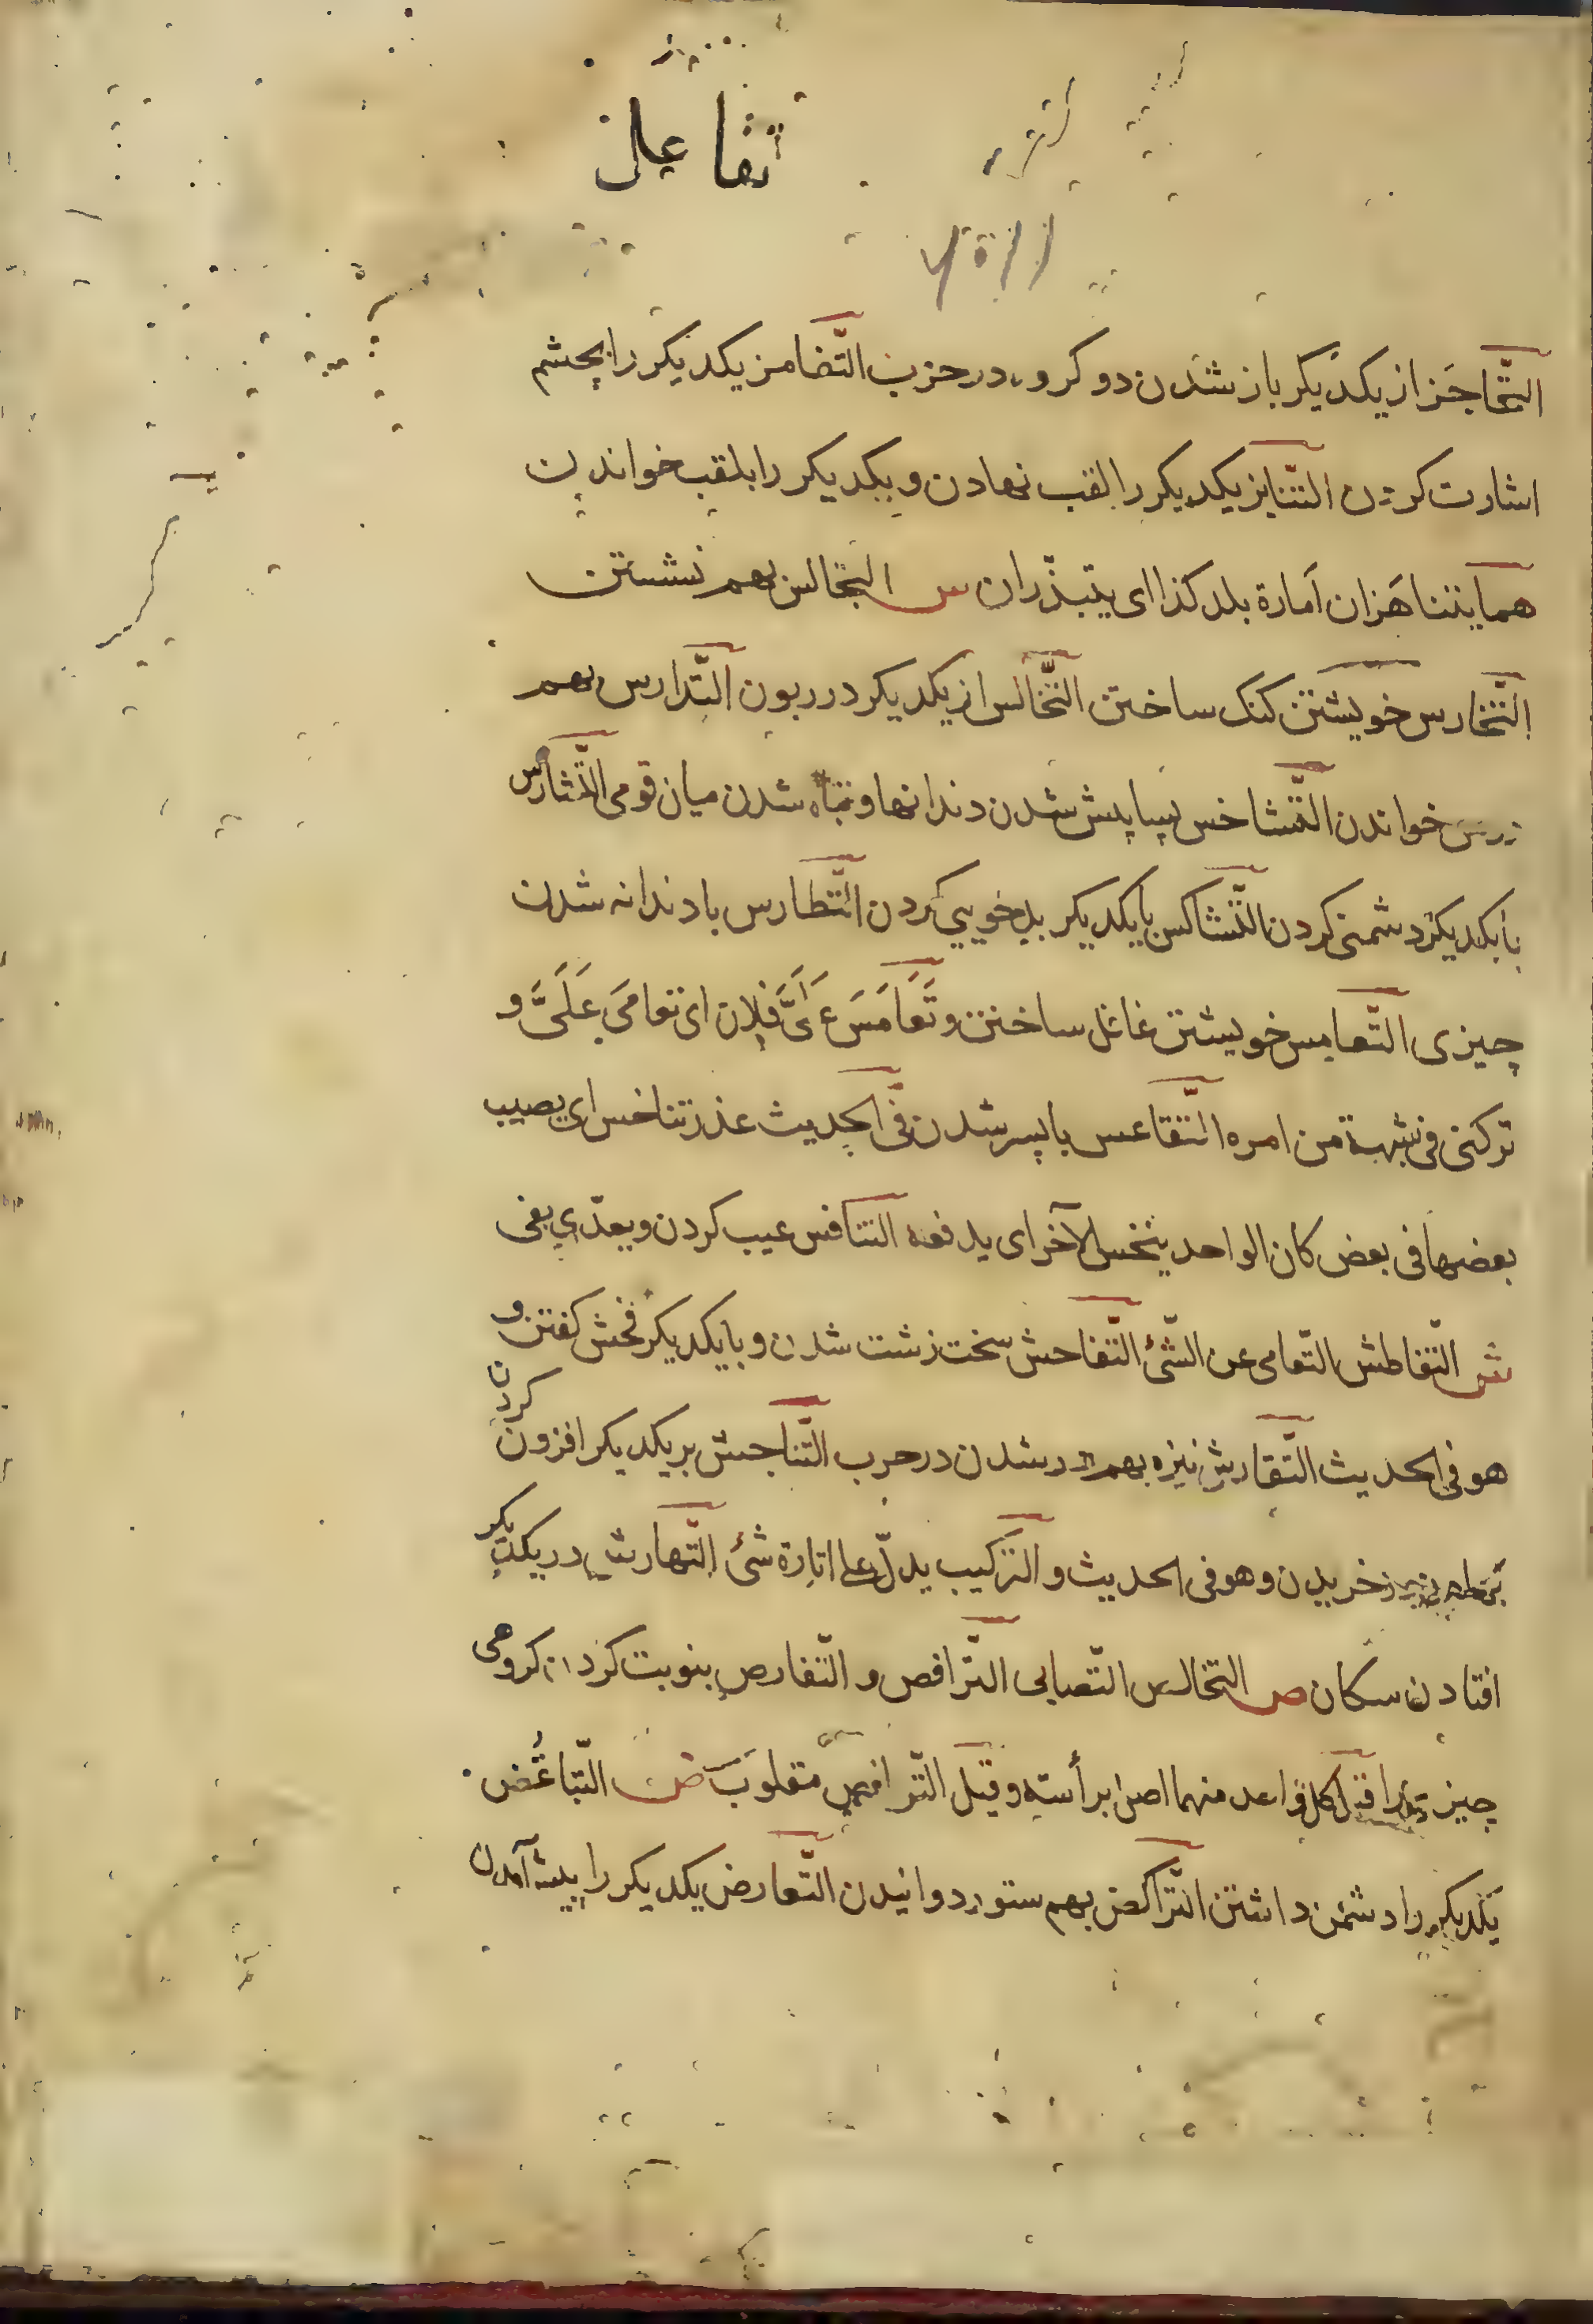 تفاعل
التّحاجز از یکدیکر باز شدن دو کروه در حرب التّغامز یکدیکر را بچشم
اشارت کردن التّنابز یکدیکر را لقب نهادن و یکدیکر را بلقب خواندن
هما یتناهزان امارة بلد کذا ای یتبذّران س التجالس بهم نشستن
التّخارس خویشتن کنک ساختن التّخالس از یکدیکر در ربودن التّدارس بهم
درس خواندن التّشاخس پساپیش شدن دندانها و تباه شدن میان قومی التّشارس
با یکدیکر دشمنی کردن التّشاکس با یکدیکر بدخویی کردن التّطارس با دندانه شدن
چیزی التّعامس خویشتن غافل ساختن و تَعَامَسَ عَلَیَّ فلان ای تعامی عَلَیَّ و
ترکنی فی شبهة من امره التّقاعس باپس شدن فی الحدیث عذر تتناخس ای یصیب
بعضها فی بعض کان الواحد ینخس الآخر ای یدفعه التنافس عیب کردن و یعدّی بفی
ش التّغاطش التّعامی عن الشّئ التّفاحش سخت زشت شدن و با یکدیکر فحش کفتن و
هو فی الحدیث التّقارش نیزه بهم در شدن در حرب التّناجش بر یکدیکر افزون کردن
خریدن و هو فی الحدیث و التّرکیب یدلّ علی اثارة شئ التّهارش در یکدیکر
افتادن سکان ص التخالص التّصابی التّرافص و التّفارص بنوبت کردن کروهی
چیز منهما و قیل التّرافص مقلوب ض التّباغض
یکدیکر را دشمن داشتن التّراکض بهم ستور دوانیدن التّعارض یکدیکر را پیش آمدن